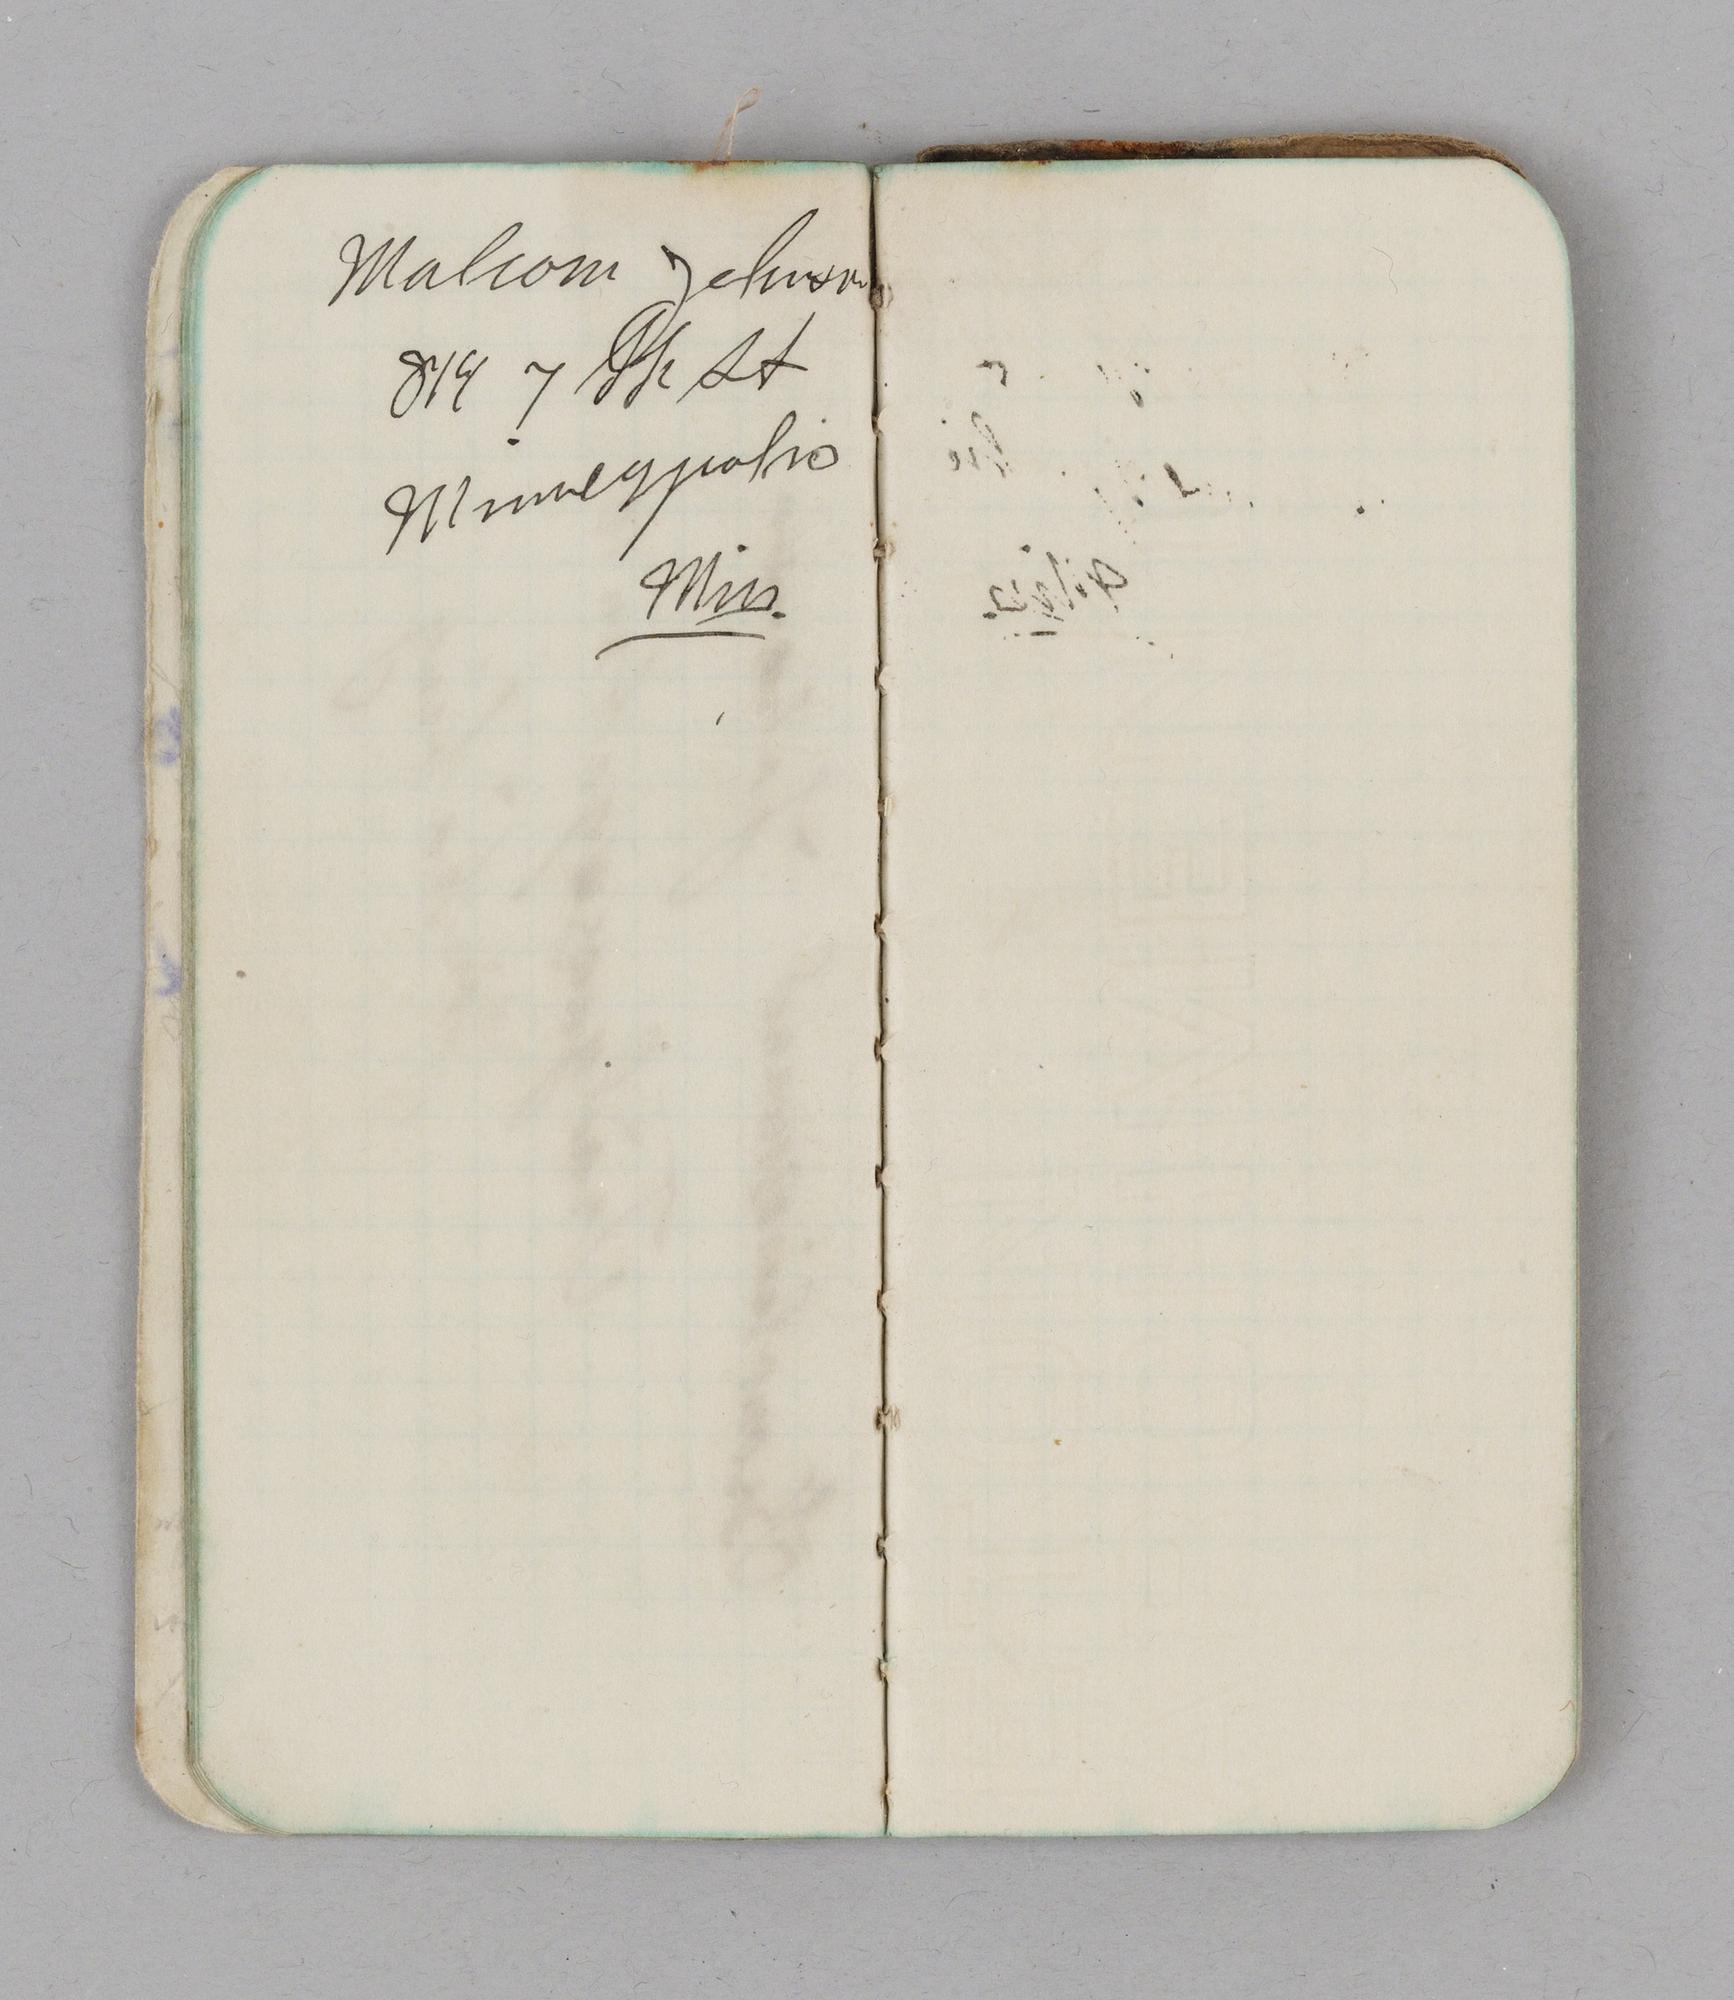 Malcom Johnson
819 7 th St
Minneapolis
Min.